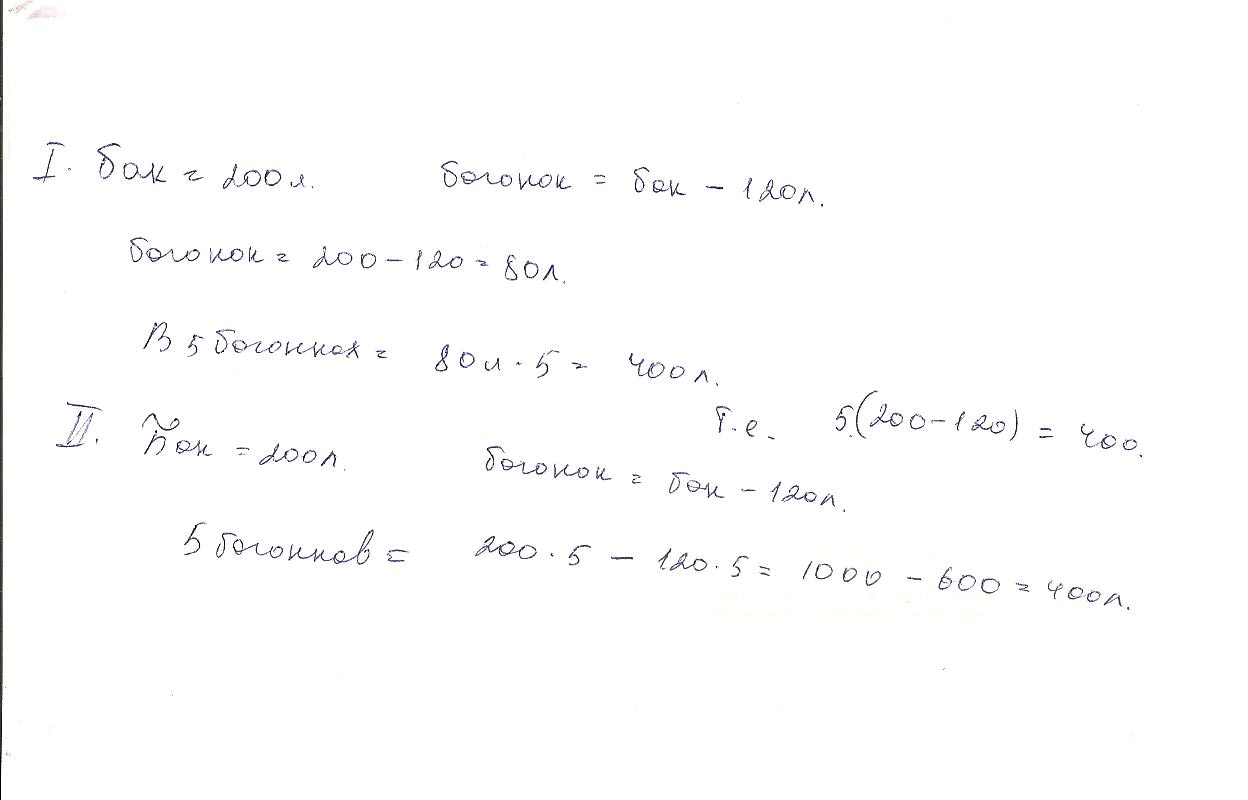 I. бак = 200 л. богонок = бак - 120 л.
богонок = 200 - 120 = 80 л.
В 5 богонках = 80 л · 5 = 400 л.
т.е. 5·(200-120) = 400.
II. Бак = 200 л. богонок = бак - 120 л.
5 богонков = 200 · 5 - 120 · 5 = 1000 - 600 = 400 л.